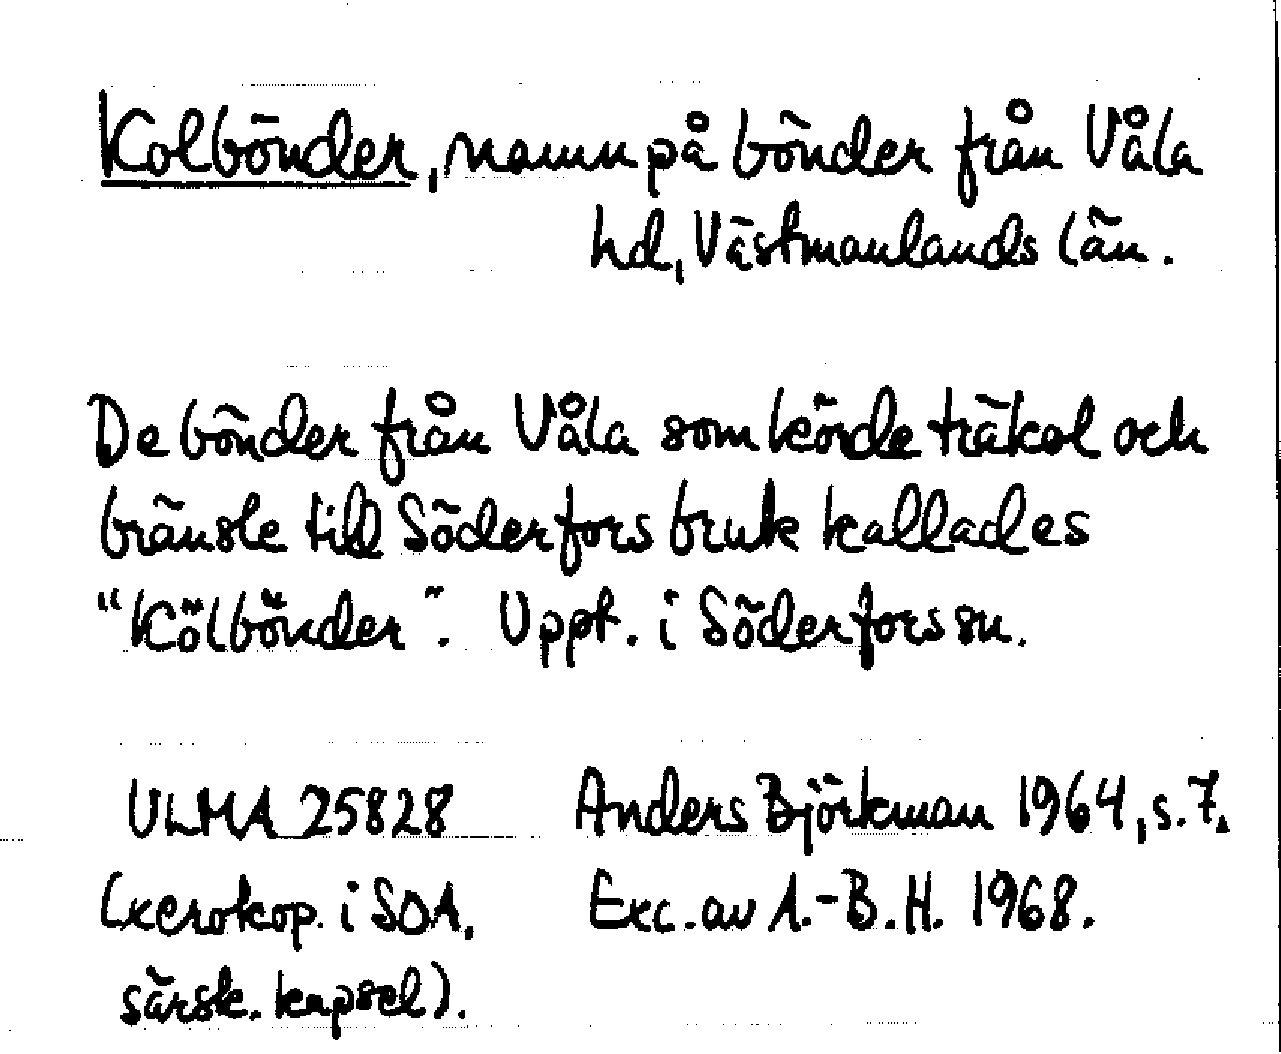 Kolbönder, namn på bönder från Våla
hd, Västmanlands län.
De bönder från Våla som körde träkol och
bränsle till Söderfors bruk kallades
"kölbönder". Uppt. i Söderfors sn.
ULMA 25828 Anders Björkman 1964, s. 7.
(xerokop. i SOA, Exc. av A.-B. H. 1968.
särsk. kapsel).